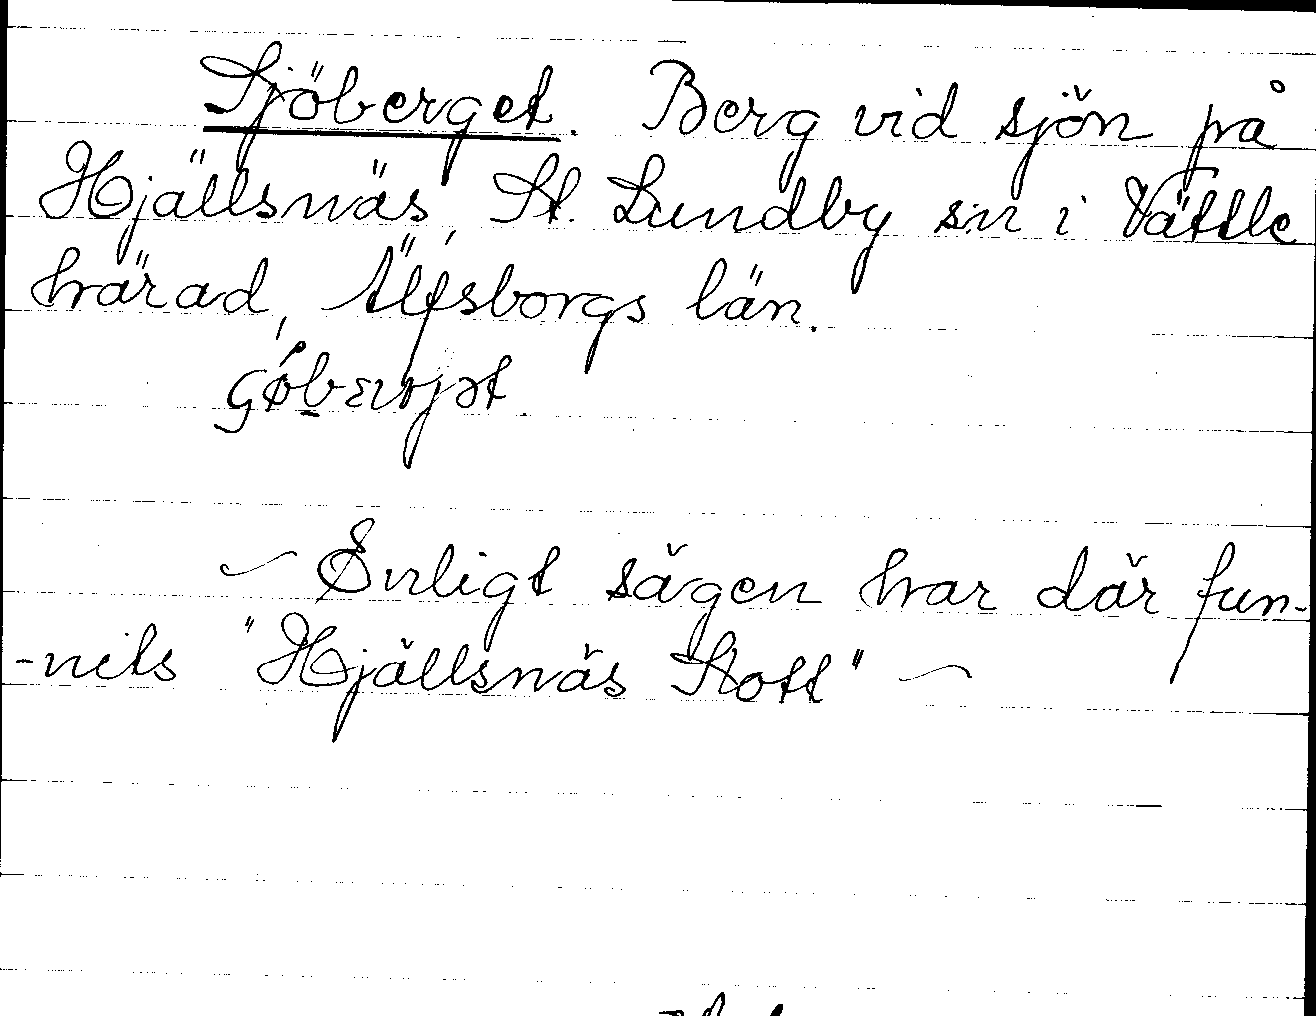 Sjöberget. Berg vid sjön på
Hjällsnäs, St. Lundby sn i Vättle
härad, Älfsborgs län.
Enligt sägen har där fun-
-nits "Hjällsnäs Slott"